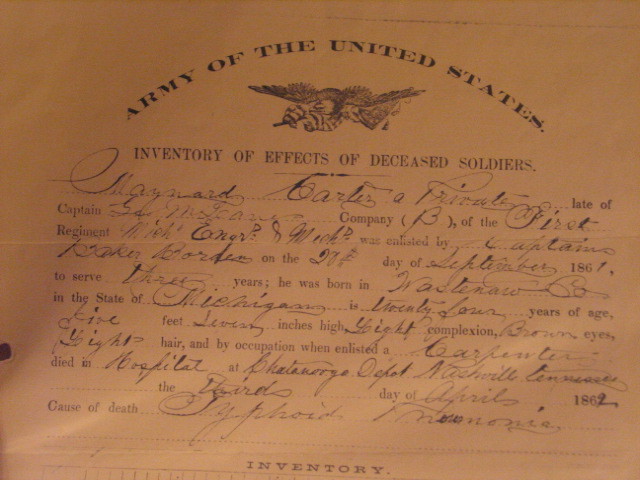 ARMY OF THE UNITED STATES.
INVENTORY OF EFFECTS OF DECEASED SOLDIERS.
Maynard Carter a Private late of
Captain Company (B), of the First
Regiment Mich Engrs & Mechs was enlisted by Captain
Baker Borden on the 20th day of September 1861,
to serve three years; he was born in Wastenaw Co
in the State of Michigan is twenty four years of age,
five feet seven inches high, Light complexion, Brown eyes,
Light hair, and by occupation when enlisted a Carpenter
died in Hospital at Chatanooga Depot Nashville Tennessee
the third day of April 1862
Cause of death Typhoid Pneumonia
INVENTORY.